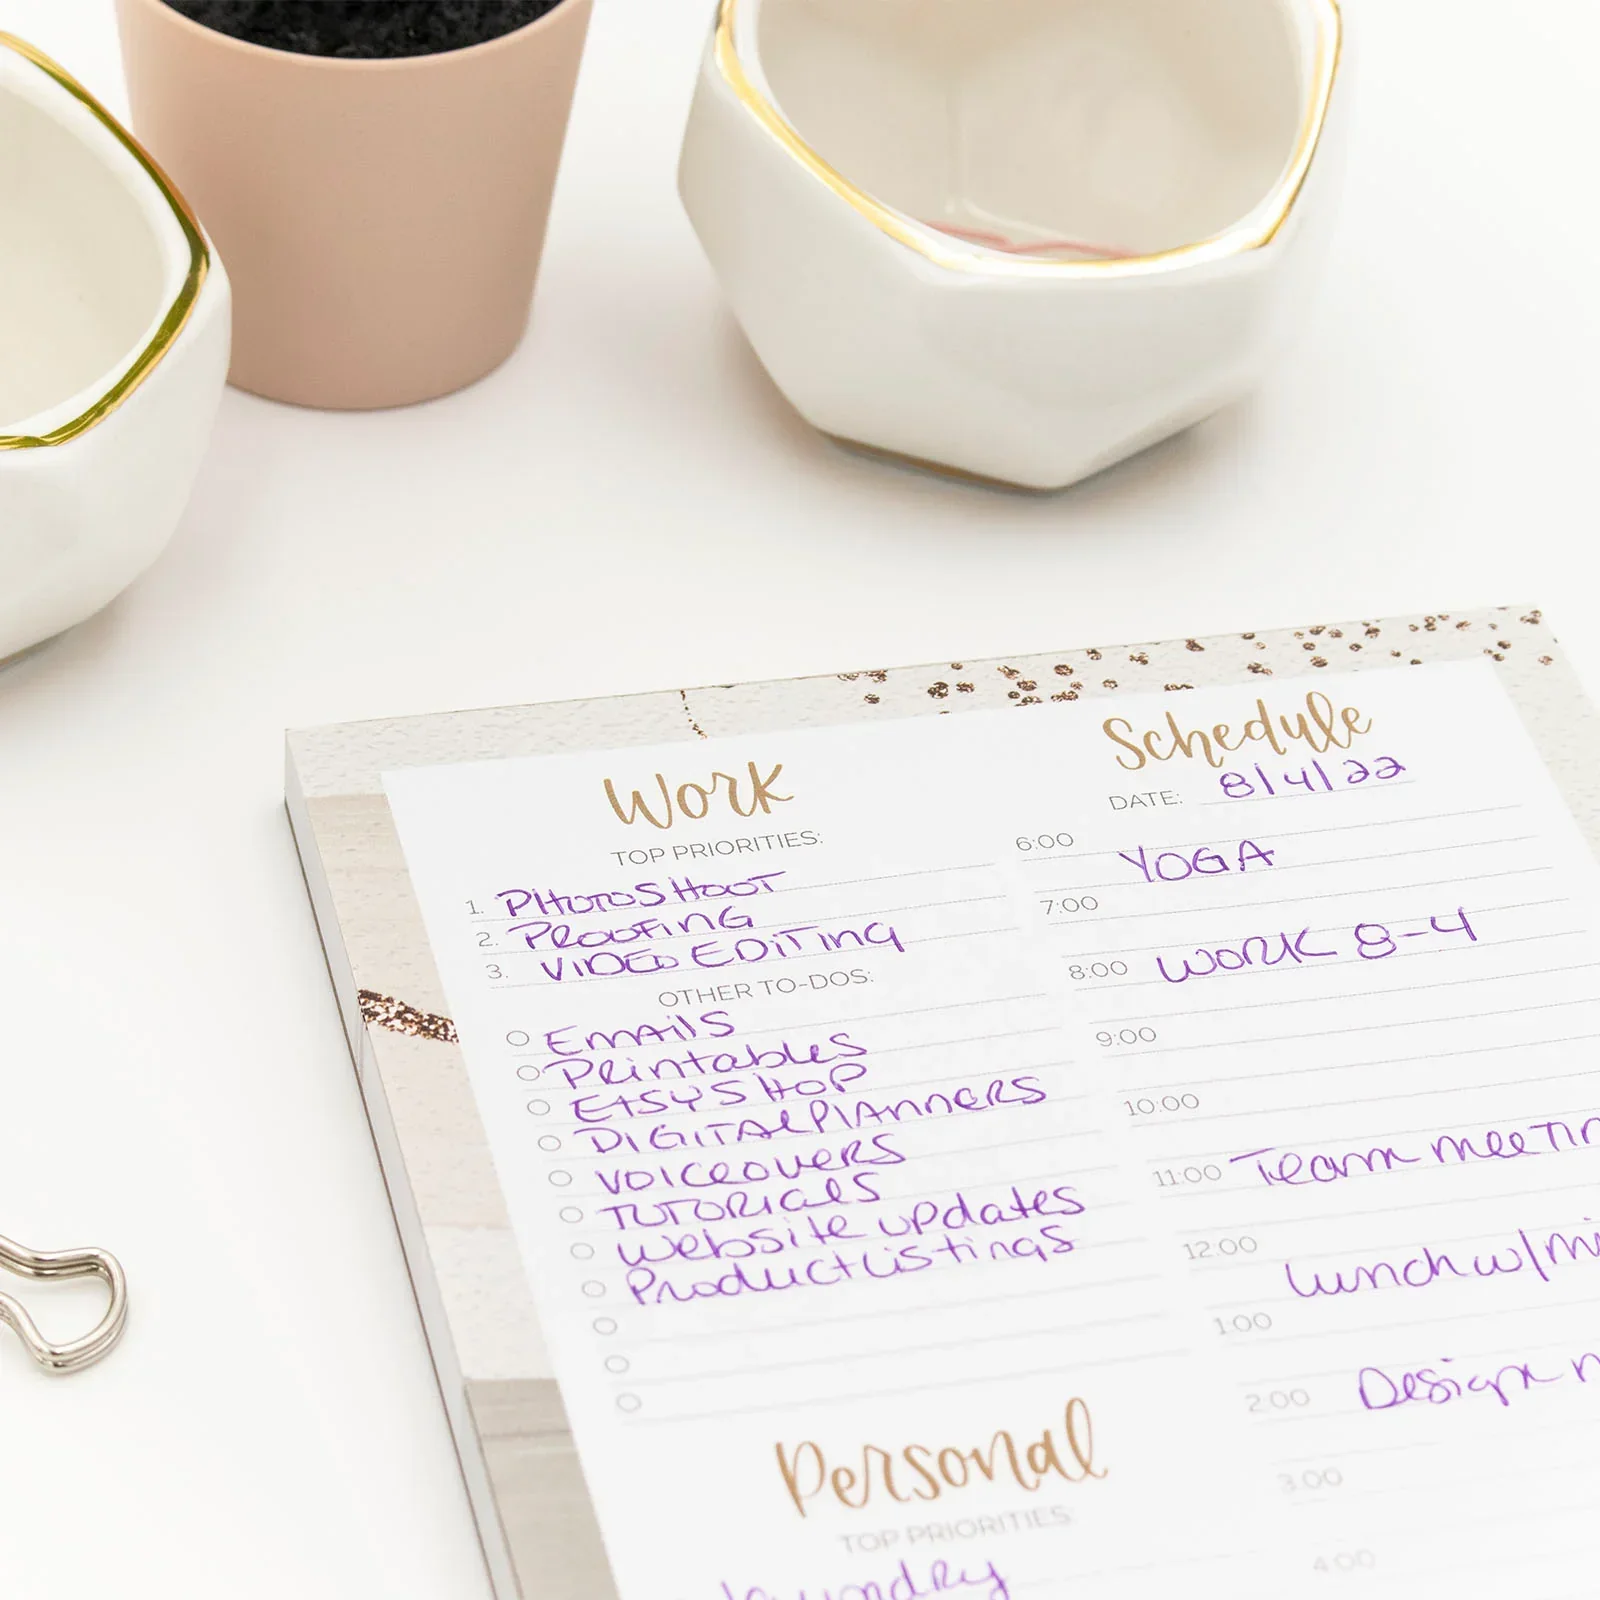 Work
TOP PRIORITIES:
1. PHOTOSHOOT
2. PROOFING
3. VIDEO EDITING
OTHER TO-DOS:
EMAILS
Printables
ETSY SHOP
DIGITAL PLANNERS
VOICEOVERS
TUTORIALS
Website updates
Product Listings
Personal
TOP PRIORITIES:
Laundry
Schedule
DATE: 8/4/22
6:00
YOGA
7:00
8:00 WORK 8-4
9:00
10:00
11:00 Team
12:00
Lunch w/
1:00
2:00 Design
3:00
4:00